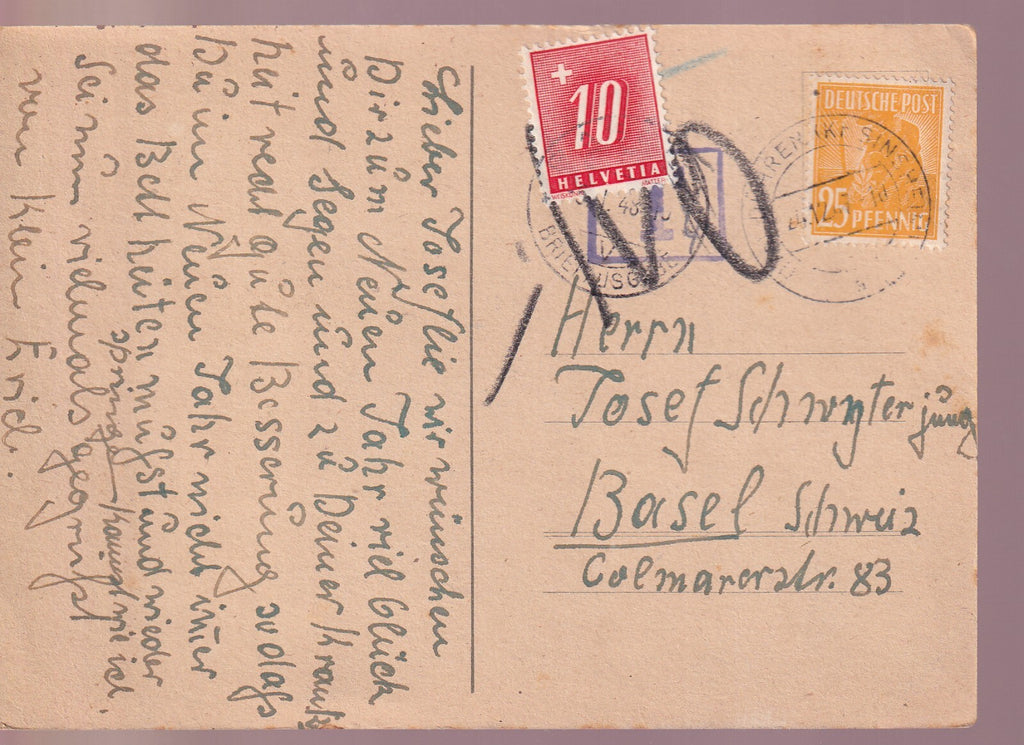 Lieber Joseflie wir wünschen
Dir zum Neuen Jahr viel Glück
und Segen und zu Deiner Krankh
heit recht gute Besserung sodass
Du im Neuen Jahr nicht immer
das Bett hüten musst und wieder
springe kannst wie ich.
Sei nun vielmals gegrüsst
von Klein Erich.
+
10
HELVETIA
DEUTSCHE POST
25 PFENNIG
SINSHEIM
BRIEFAUSGABE
Herrn
Josef Schwyter jung
Basel Schweiz
Colmarerstr. 83